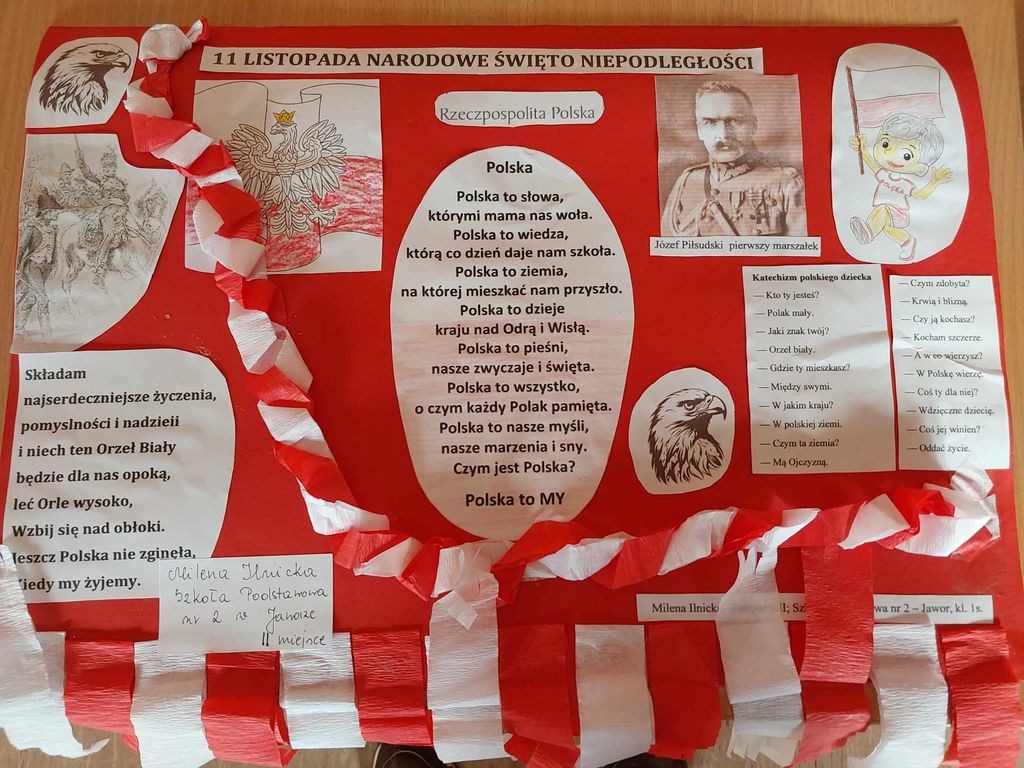 11 LISTOPADA NARODOWE ŚWIĘTO NIEPODLEGŁOŚCI
Rzeczpospolita Polska
Polska
Polska to słowa,
którymi mama nas woła.
Polska to wiedza,
którą co dzień daje nam szkoła.
Polska to ziemia,
na której mieszkać nam przyszło.
Polska to dzieje
kraju nad Odrą i Wisłą.
Polska to pieśni,
nasze zwyczaje i święta.
Polska to wszystko,
o czym każdy Polak pamięta.
Polska to nasze myśli,
nasze marzenia i sny.
Czym jest Polska?
Polska to MY
Józef Piłsudski pierwszy marszałek
POLSKA
Katechizm polskiego dziecka
— Kto ty jesteś?
— Polak mały.
— Jaki znak twój?
— Orzeł biały.
— Gdzie ty mieszkasz?
— Między swymi.
— W jakim kraju?
— W polskiej ziemi.
— Czym ta ziemia?
— Mą Ojczyzną.
— Czym zdobyta?
— Krwią i blizną.
— Czy ją kochasz?
— Kocham szczerze.
— A w co wierzysz?
— W Polskę wierzę.
— Coś ty dla niej?
— Wdzięczne dziecię.
— Coś jej winien?
— Oddać życie.
Składam
najserdeczniejsze życzenia,
pomyslności i nadzieii
i niech ten Orzeł Biały
będzie dla nas opoką,
leć Orle wysoko,
Wzbij się nad obłoki.
Jeszcz Polska nie zginęła,
Kiedy my żyjemy.
Milena Ilnicka
Szkoła Podstawowa
nr 2 w Jaworze
II miejsce
Milena Ilnicka I; Sz wa nr 2 – Jawor, kl. 1s.